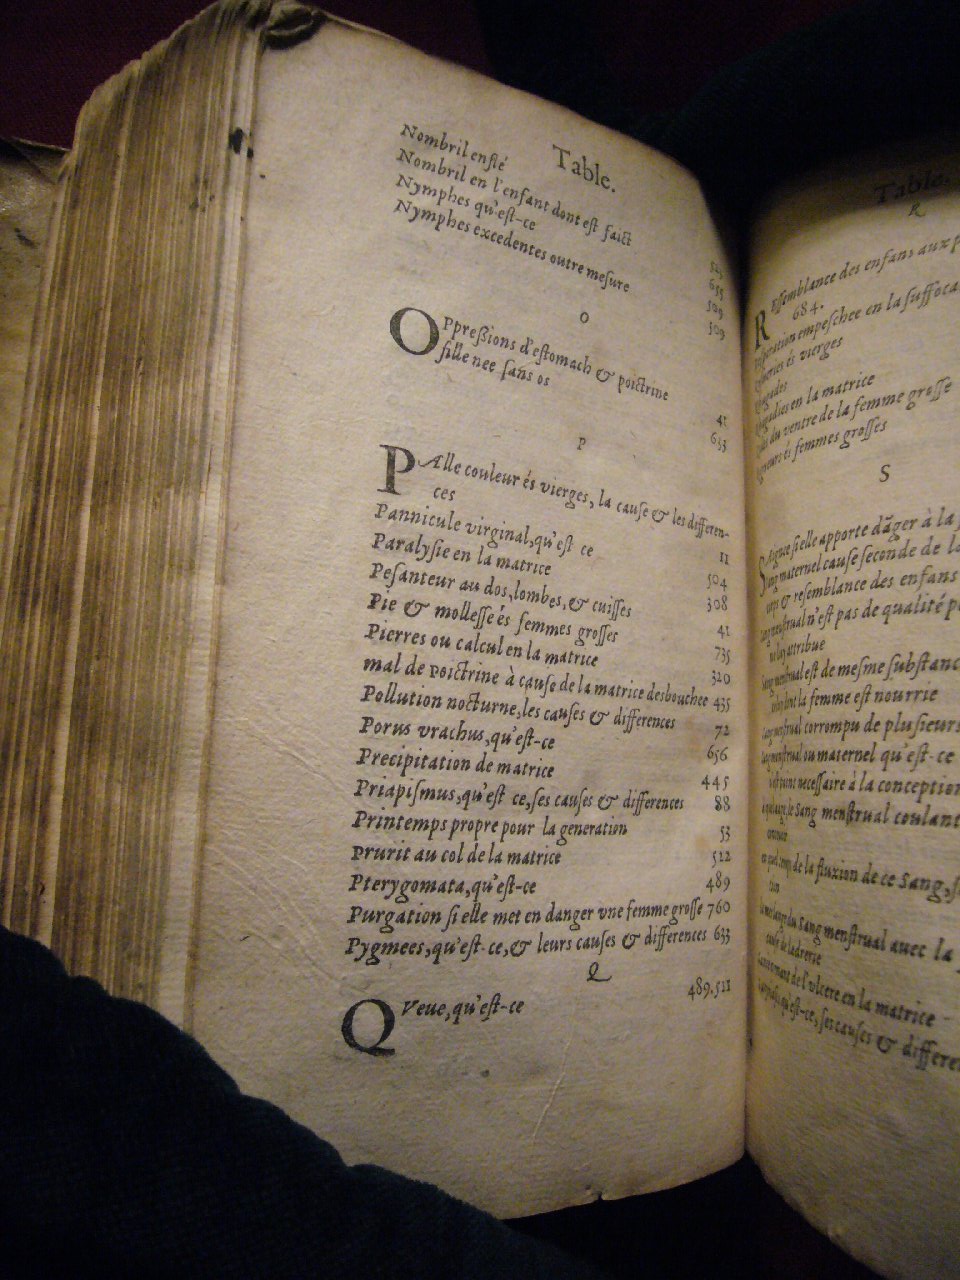 Table.
Nombril enflé 525
Nombril en l'enfant dont est faict 655
Nymphes qu'est-ce 509
Nymphes excedentes outre mesure 509
O
OPpreßions d'estomach & poictrine 41
fille nee sans os 633
P
PAlle couleur és vierges, la cause & les differen-
ces 11
Pannicule virginal, qu'est ce 504
Paralysie en la matrice 308
Pesanteur au dos, lombes, & cuisses 41
Pie & mollesse és femmes grosses 735
Pierres ou calcul en la matrice 320
mal de poictrine à cause de la matrice desbouchee 435
Pollution nocturne, les causes & differences 72
Porus vrachus, qu'est-ce 656
Precipitation de matrice 445
Priapismus, qu'est ce, ses causes & differences 88
Printemps propre pour la generation 53
Prurit au col de la matrice 512
Pterygomata, qu'est-ce 489
Purgation si elle met en danger vne femme grosse 760
Pygmees, qu'est-ce, & leurs causes & differences 633
Q
QVeue, qu'est-ce 489.511
Table.
R
REssemblance des enfans aux
684.
empeschee en la suffoca
és vierges
en la matrice
du ventre de la femme grosse
és femmes grosses
S
si elle apporte dãger à la
maternel cause seconde de la
& resemblance des enfans
menstrual n'est pas de qualité
attribue
menstrual est de mesme substanc
dont la femme est nourrie
Sang menstrual corrompu de plusieurs
Sang menstrual ou maternel qu'est-ce
necessaire à la conception
le Sang menstrual coulant
de la fluxion de ce Sang,
du sang menstrual auec la
de ladrerie
de l'vlcere en la matrice
qu'est-ce, ses causes & differen